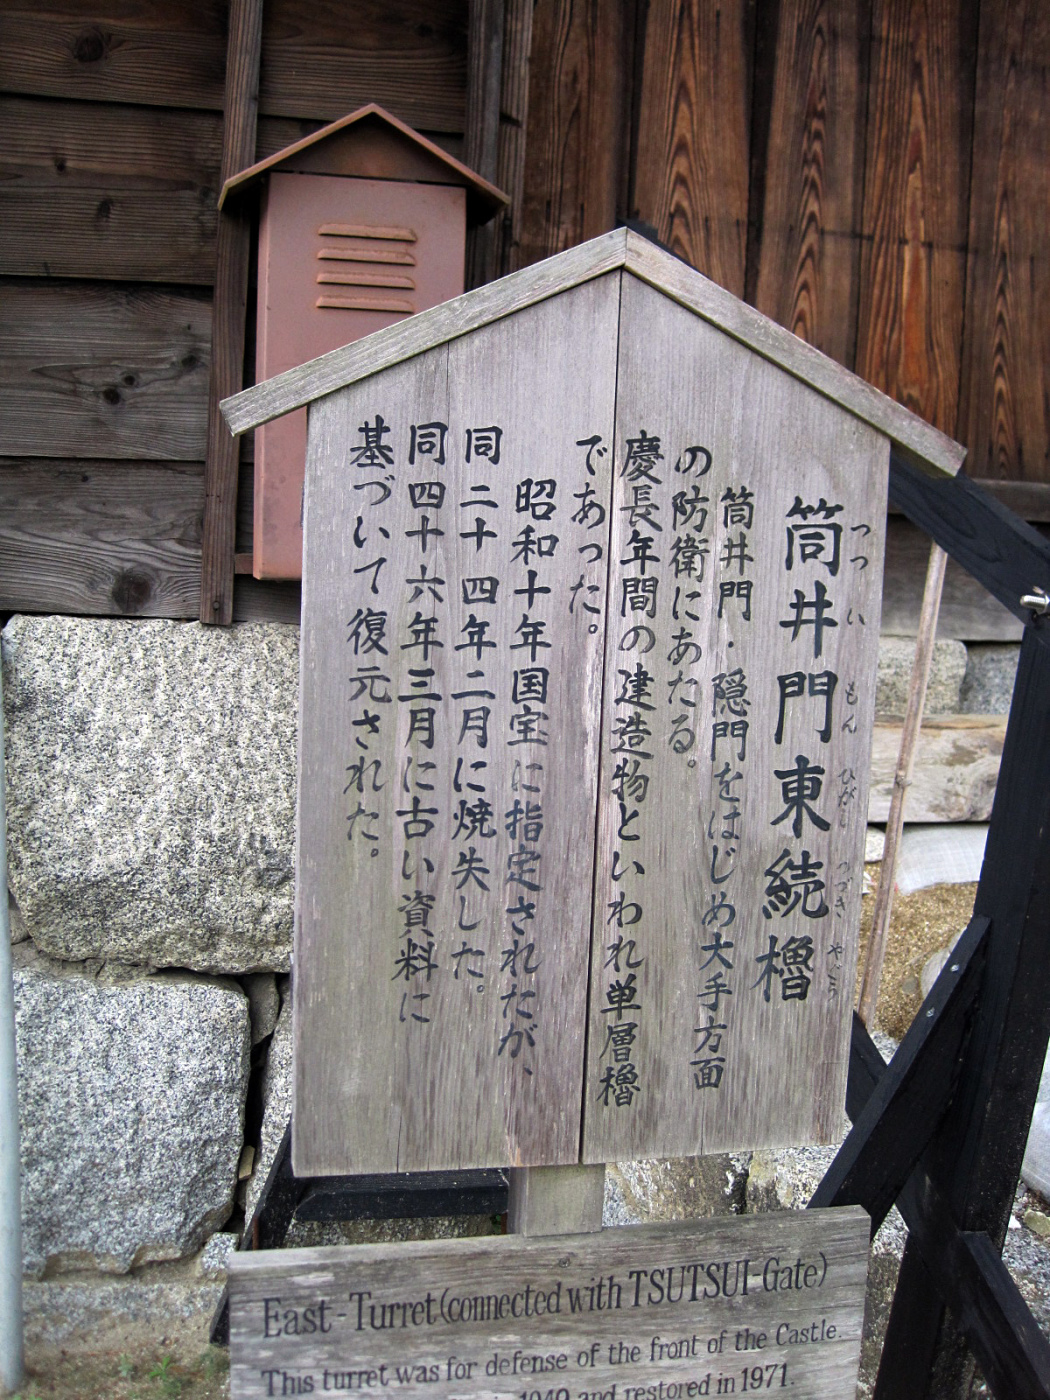 筒井門東続櫓
つつ い もん ひがし つづき やぐら
筒井門・隠門をはじめ大手方面
の防衛にあたる。
慶長年間の建造物といわれ単層櫓
であった。
昭和十年国宝に指定されたが、
同二十四年二月に焼失した。
同四十六年三月に古い資料に
基づいて復元された。
East-Turret (connected with TSUTSUI-Gate)
This turret was for defense of the front of the Castle.
1949 and restored in 1971.